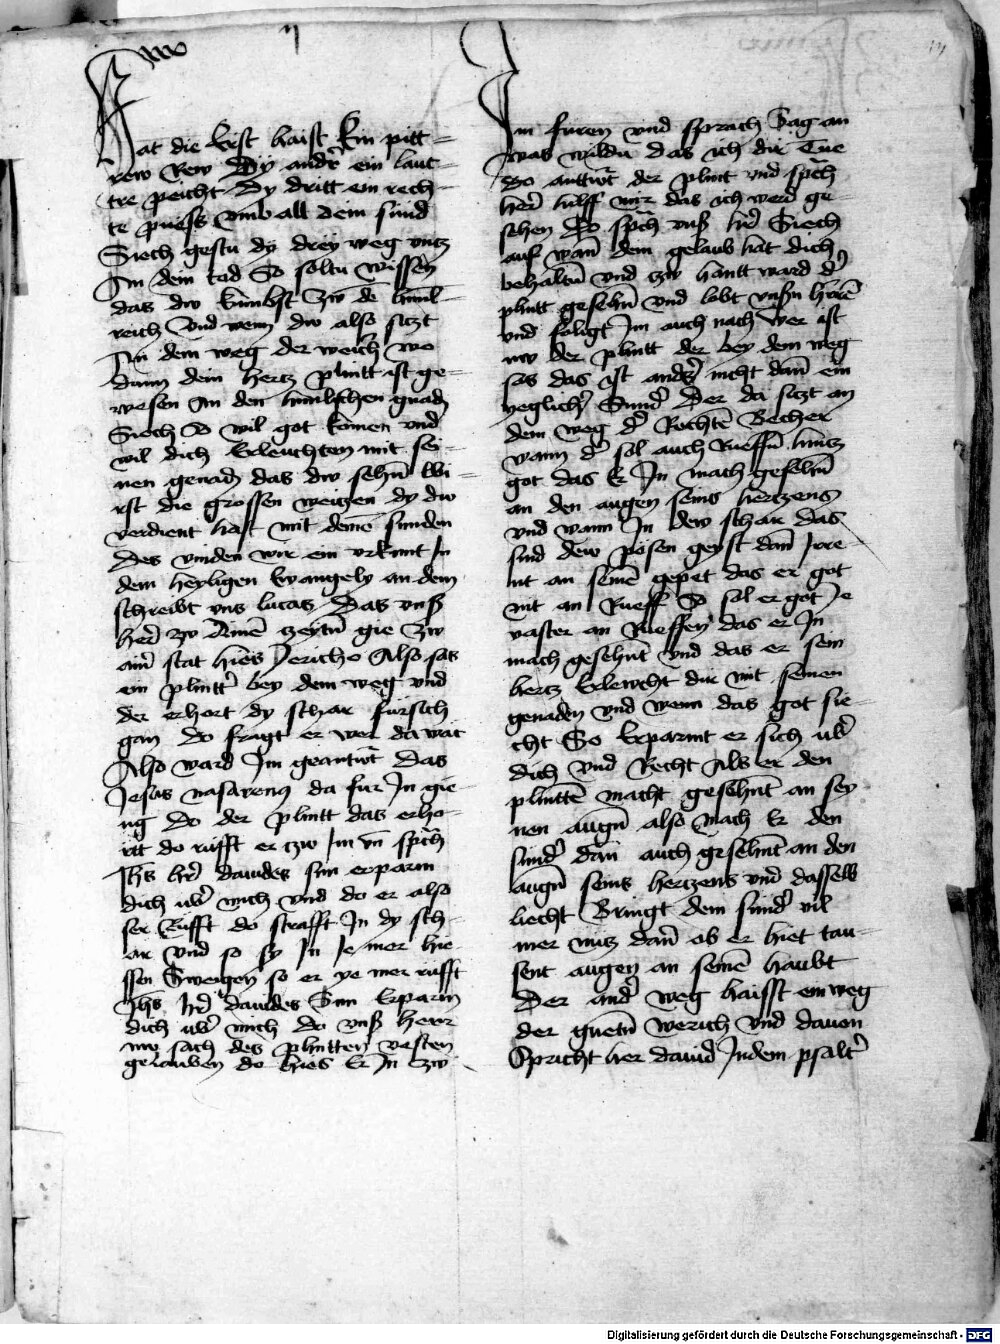 at die Erst haist Ein pitt-
rew Rew Dy ander ein laut-
tre peicht Dy dritt ein rech-
te puess umb all dein sünd
Siech gestu dy drey weg untz
In dein tod So soltu wissen
das dw kumbst zw de himl-
reich Vnd wenn dw also sitzt
In dem weg der weich wo
dann dein hertz plintt ist ge-
wesen An den himlischen gnadn
Siech So wil got komen vnd
wil dich Erleuchten mit sei-
nen genadn das dw sehn Wi-
rst die grossen weitzen dy dw
verdient hast mit deine sunden
Des vinden wir ein vrkunt In
dem heyligen Ewangely an dem
schreibt vns lucas Das vnß
her zw Ainē zeytn gie Zw
ainr stat hies Jericho Also sas
ein plintter bey dem weg vnd
der erhort dy schar fursich
gan do fragt er wer da wär
Also ward Im geantwt Das
Jesus nasarenus da fur In gie-
ng Do der plintt das erho-
rtt do rüfft er zw Im vn sprach
Jhs her dauides sun erparm
dich über mich vnd do er also
ser Rüfft do strafft In dy sch-
ar vnd so sy In Je mer hie-
ssen Sweigen so er ye mer rüfft
Jhs her dauides Sun Erparm
dich über mich do vnß herr
nw sach des plintten vesten
gelauben do hies Er In zw
Im furen vnd sprach Sag an
was wildu das ich dir Tue
Do antwt der plint vnd sprach
her hilff mir das ich werd ge-
sehen Do sprach vnß her Siech
auf wan dein gelaub hat dich
behaltn vnd zw hantt ward der
plintt gesehn vnd lobt vnsn herē
vnd folgt Im auch nach Wer ist
nw der plintt der bey dem weg
sas das ist anders nicht dan ein
yeglicher Sunder Der da sitzt an
dem weg der Rechtē Becher
wann der sol auch Rueffn hintz
got das Er In mach gesehn
an den augen seins hertzens
vnd wann In dew schar das
sind dew pösen geyst dan Irre-
nt an seinē gepet das er got
nit an Rueff So sol er got Je
vaster an Rueffen das er In
mach gesehnt vnd das er sein
hertz Erlewcht dir mit seinen
genaden vnd wenn das got sie-
cht So Erparmt er sich über
dich Vnd Recht Als er den
plintten macht gesehnt an sey-
nen augn also mach Er den
sünder dan auch gesehnt an den
augn seins hertzens vnd dasselb
liecht Bringt dem sünder vil
mer nutz dan ob er hiet tau-
sent augen an seinē haubt
Der ander weg haisst ein weg
der guetn werich Vnd dauon
Spricht her dauid In dem psalter
Digitalisierung gefördert durch die Deutsche Forschungsgemeinschaft - DFG